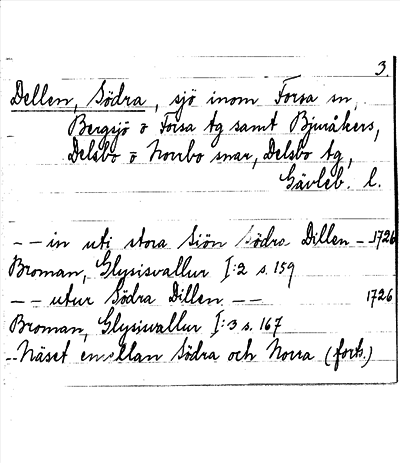 3.
Dellen, Södra, sjö inom Forsa sn,
Bergsjö o Forsa tg samt Bjuråkers,
Delsbo o Norrbo snar, Delsbo tg,
Gävleb. l.
-- in uti stora Siön Södra Dillen -- 1726
Broman, Glysisvallur I:2 s. 159
-- utur Södra Dillen -- 1726
Broman, Glysisvallur I:3 s. 167
-- Näset emellan Södra och Norra (forts.)